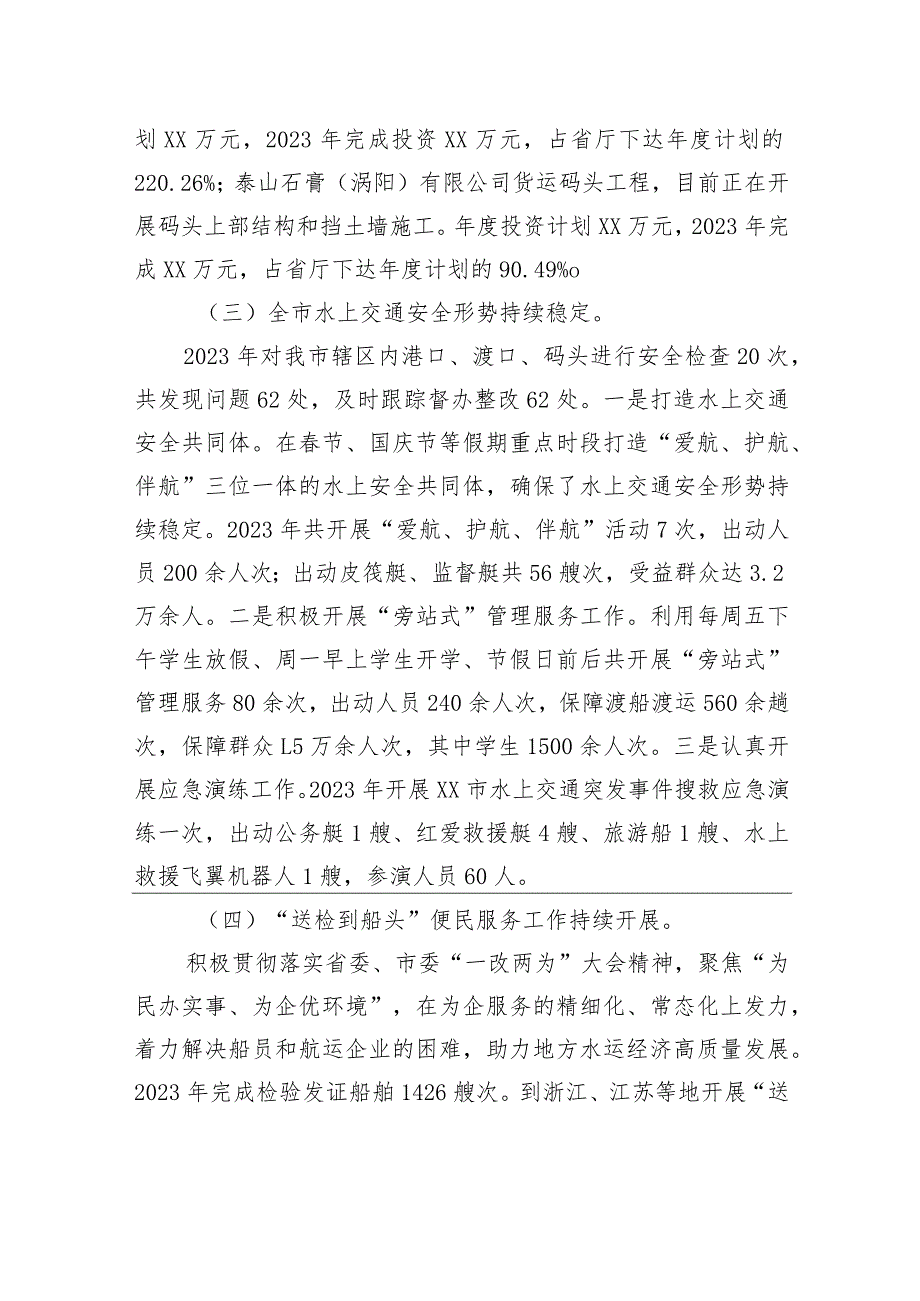 划 XX 万元，2023 年完成投资 XX 万元，占省厅下达年度计划的
220.26%；泰山石膏（涡阳）有限公司货运码头工程，目前正在开
展码头上部结构和挡土墙施工。年度投资计划 XX 万元，2023 年完
成 XX 万元，占省厅下达年度计划的 90.49%o
（三）全市水上交通安全形势持续稳定。
2023 年对我市辖区内港口、渡口、码头进行安全检查 20 次，
共发现问题 62 处，及时跟踪督办整改 62 处。一是打造水上交通
安全共同体。在春节、国庆节等假期重点时段打造“爱航、护航、
伴航”三位一体的水上安全共同体，确保了水上交通安全形势持
续稳定。2023 年共开展“爱航、护航、伴航”活动 7 次，出动人
员 200 余人次；出动皮筏艇、监督艇共 56 艘次，受益群众达 3.2
万余人。二是积极开展“旁站式”管理服务工作。利用每周五下
午学生放假、周一早上学生开学、节假日前后共开展“旁站式”
管理服务 80 余次，出动人员 240 余人次，保障渡船渡运 560 余趟
次，保障群众 L5 万余人次，其中学生 1500 余人次。三是认真开
展应急演练工作。2023 年开展 XX 市水上交通突发事件搜救应急演
练一次，出动公务艇 1 艘、红爱救援艇 4 艘、旅游船 1 艘、水上
救援飞翼机器人 1 艘，参演人员 60 人。
（四）“送检到船头”便民服务工作持续开展。
积极贯彻落实省委、市委“一改两为”大会精神，聚焦“为
民办实事、为企优环境”，在为企服务的精细化、常态化上发力，
着力解决船员和航运企业的困难，助力地方水运经济高质量发展。
2023 年完成检验发证船舶 1426 艘次。到浙江、江苏等地开展“送